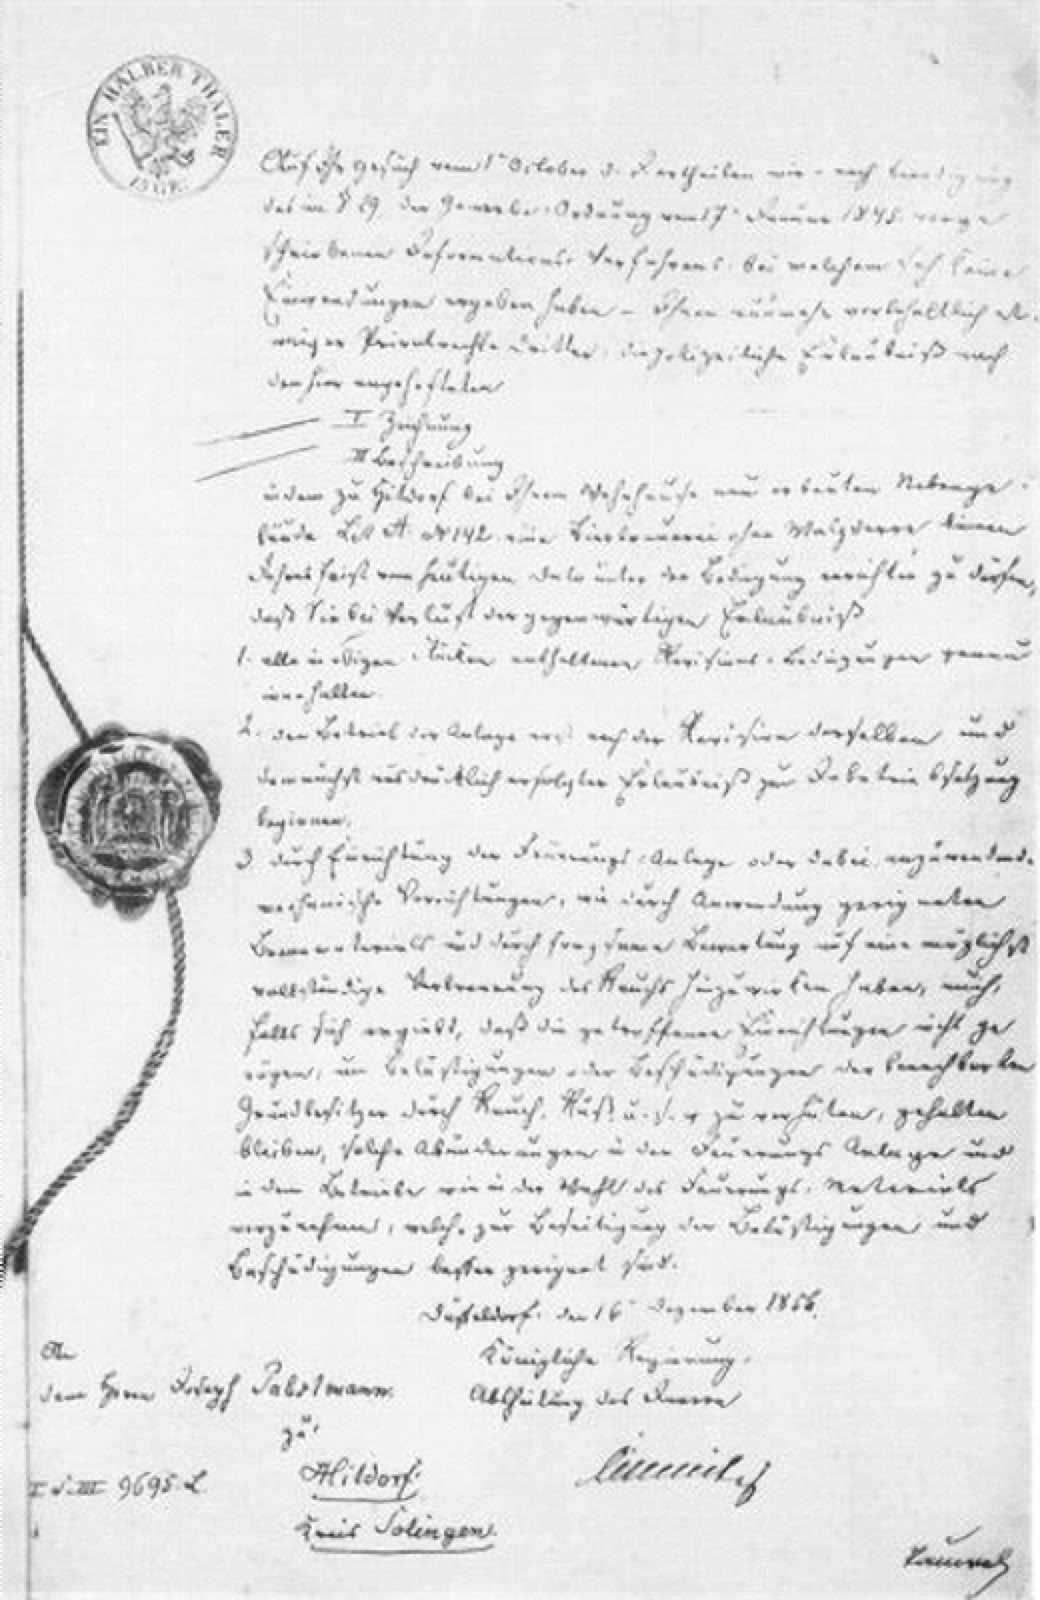 EIN HALBER THALER
15 GR.
Auf Ihr Gesuch vom 1ten October d. J. ertheilen wir – nach Beendigung
des im § 29 der Gewerbe-Ordnung vom 17ten Januar 1845 vorge
schriebenen Informations-Verfahrens, bei welchem sich keine
Einwendungen ergeben haben – Ihnen nunmehr vorbehaltlich et-
waiger Privatrechte Dritter, die polizeiliche Erlaubniß nach
der hier angehefteten
I Zeichnung
II Beschreibung
in dem zu Hitdorf bei Ihrem Wohnhause neu erbauten Nebenge
bäude Lit A. No 142 eine Bierbrauerei ohne Malzdarre binnen
Jahresfrist vom heutigen Dato unter der Bedingung errichten zu dürfen,
daß Sie bei Verlust der gegenwärtigen Erlaubniß
1. alle in obigen Stücken enthaltenen Revisions-Bedingungen genau
innehalten.
2. den Betrieb der Anlage erst nach der Revision derselben und
demnächst ausdrücklich erfolgter Erlaubniß zur Inbetriebsetzung
beginnen.
3. durch Einrichtung der Feuerungs-Anlage oder dabei anzuwendende
mechanische Vorrichtungen, wie durch Anwendung geeigneten
Brennmaterials und durch sorgsame Bewartung auf eine möglichst
vollständige Verbrennung des Rauchs hinzuwirken haben, auch,
falls sich ergiebt, daß die getroffenen Einrichtungen nicht ge
nügen, um Belästigungen oder Beschädigungen der benachbarten
Grundbesitzer durch Rauch, Ruß u. s. w zu verhüten, gehalten
bleiben, solche Abänderungen in der Feuerungs Anlage und
in dem Betriebe wie in der Wahl des Feuerungs-Materials
vorzunehmen, welche zur Beseitigung der Belästigungen und
Beschädigungen besser geeignet sind.
Düsseldorf, den 16ten Dezember 1856.
Königliche Regierung,
Abtheilung des Innern
An
den Herrn Joseph Pabstmann
zu
Hitdorf.
Kreis Solingen.
I S. III 9695. L.